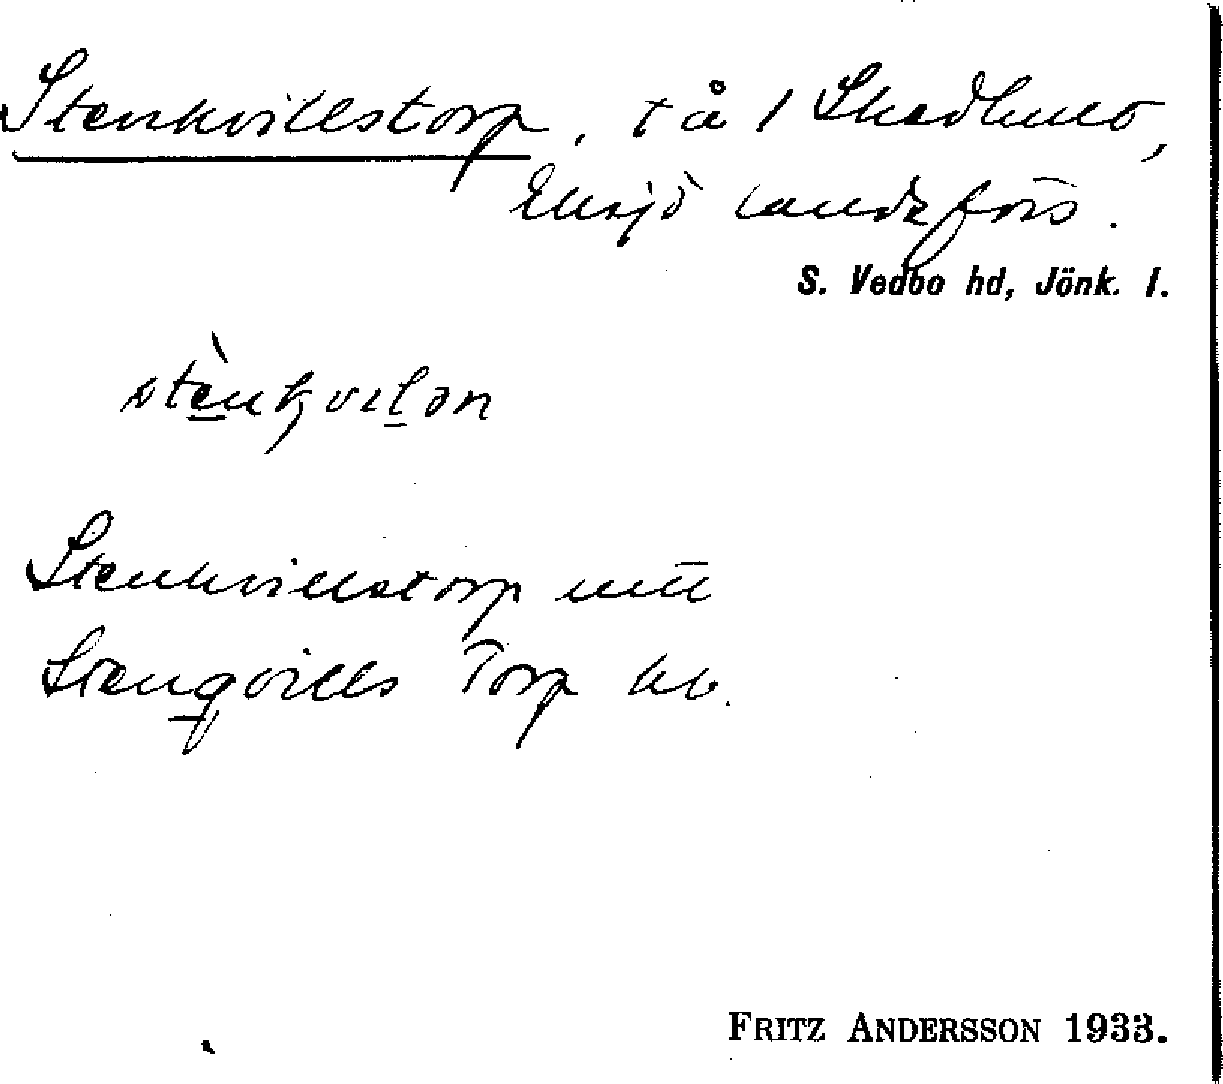 Stenkvillstorp, t å 1 Skedhult,
Eksjö landsförs.
S. Vedbo hd, Jönk. l.
stènkvilən
Stenkvillstorp
Stenqvills Torp
FRITZ ANDERSSON 1933.